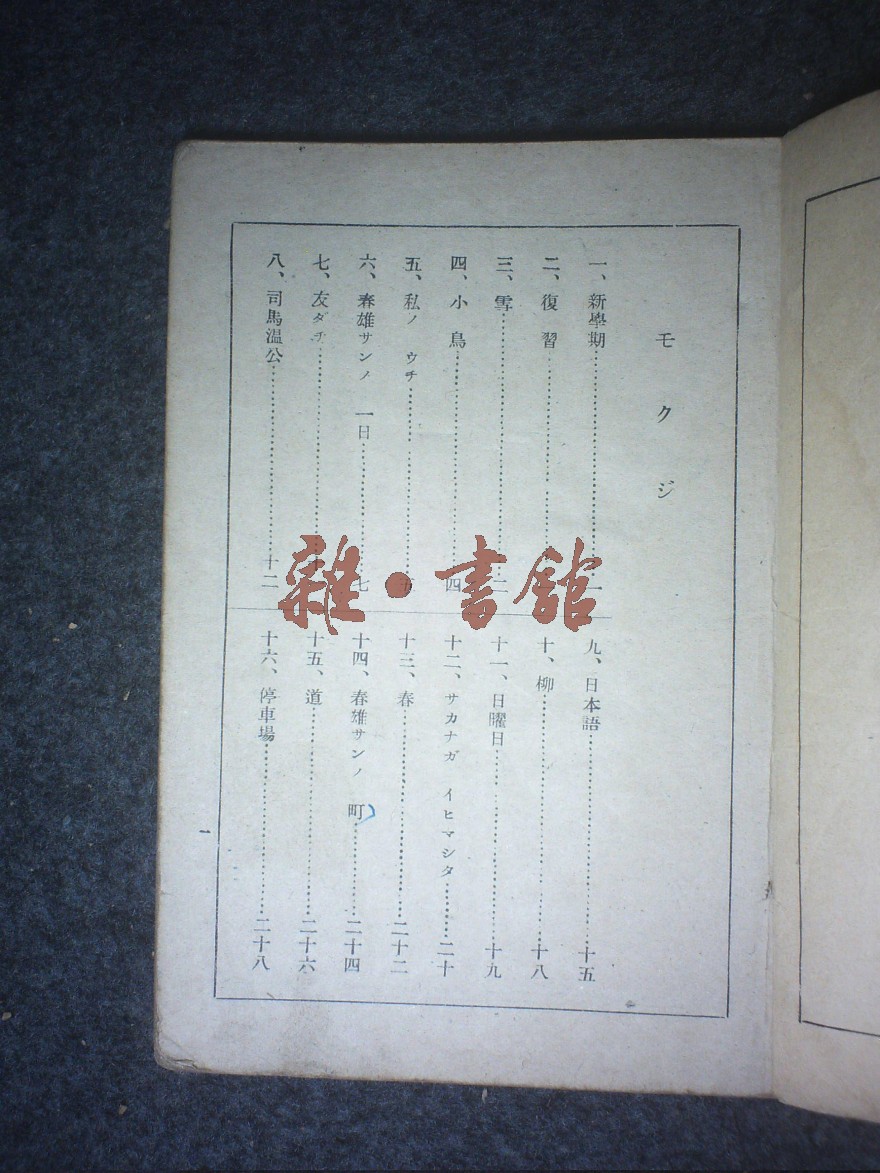 モクジ
一、新學期……一
二、復習……
三、雪……二
四、小鳥……四
五、私ノ ウチ……五
六、春雄サンノ 一日……七
七、友ダチ……
八、司馬溫公……十二
九、日本語……十五
十、柳……十八
十一、日曜日……十九
十二、サカナガ イヒマシタ……二十
十三、春……二十二
十四、春雄サンノ 町……二十四
十五、道……二十六
十六、停車場……二十八
一
雜·書館